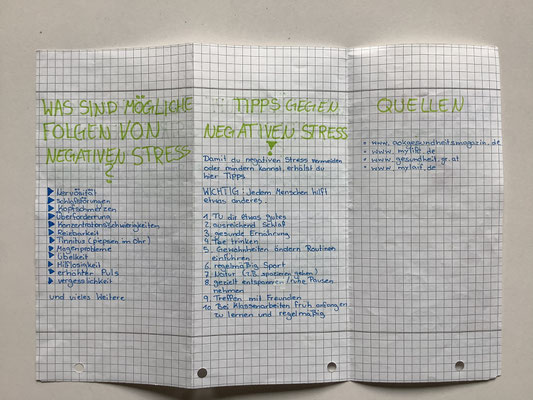 WAS SIND MÖGLICHE
FOLGEN VON
NEGATIVEN STRESS
?
Nervosität
Schlafstörungen
Kopfschmerzen
Überforderung
Konzentrationsschwierigkeiten
Reizbarkeit
Tinnitus (piepsen im Ohr)
Magenprobleme
Übelkeit
Hilflosigkeit
erhöhter Puls
vergesslichkeit
und vieles Weitere
TIPPS GEGEN
NEGATIVEN STRESS
!
Damit du negativen Stress vermeiden
oder mindern kannst, erhälst du
hier Tipps.
WICHTIG: Jedem Menschen hilft
etwas anderes.
1. TU dir etwas gutes
2. ausreichend Schlaf
3. gesunde Ernährung
4. Tee trinken
5. Gewohnheiten ändern Routinen
einführen
6. regelmäßig Sport
7. Natur (z.B. spazieren gehen)
8. gezielt entspannen/ruhe Pausen
nehmen
9. Treffen mit Freunden
10. Bei Klassenarbeiten früh anfangen
zu lernen und regelmäßig
QUELLEN
www.aokgesundheitsmagazin.de
www.mylife.de
www.gesundheit.gv.at
www.mylaif.de